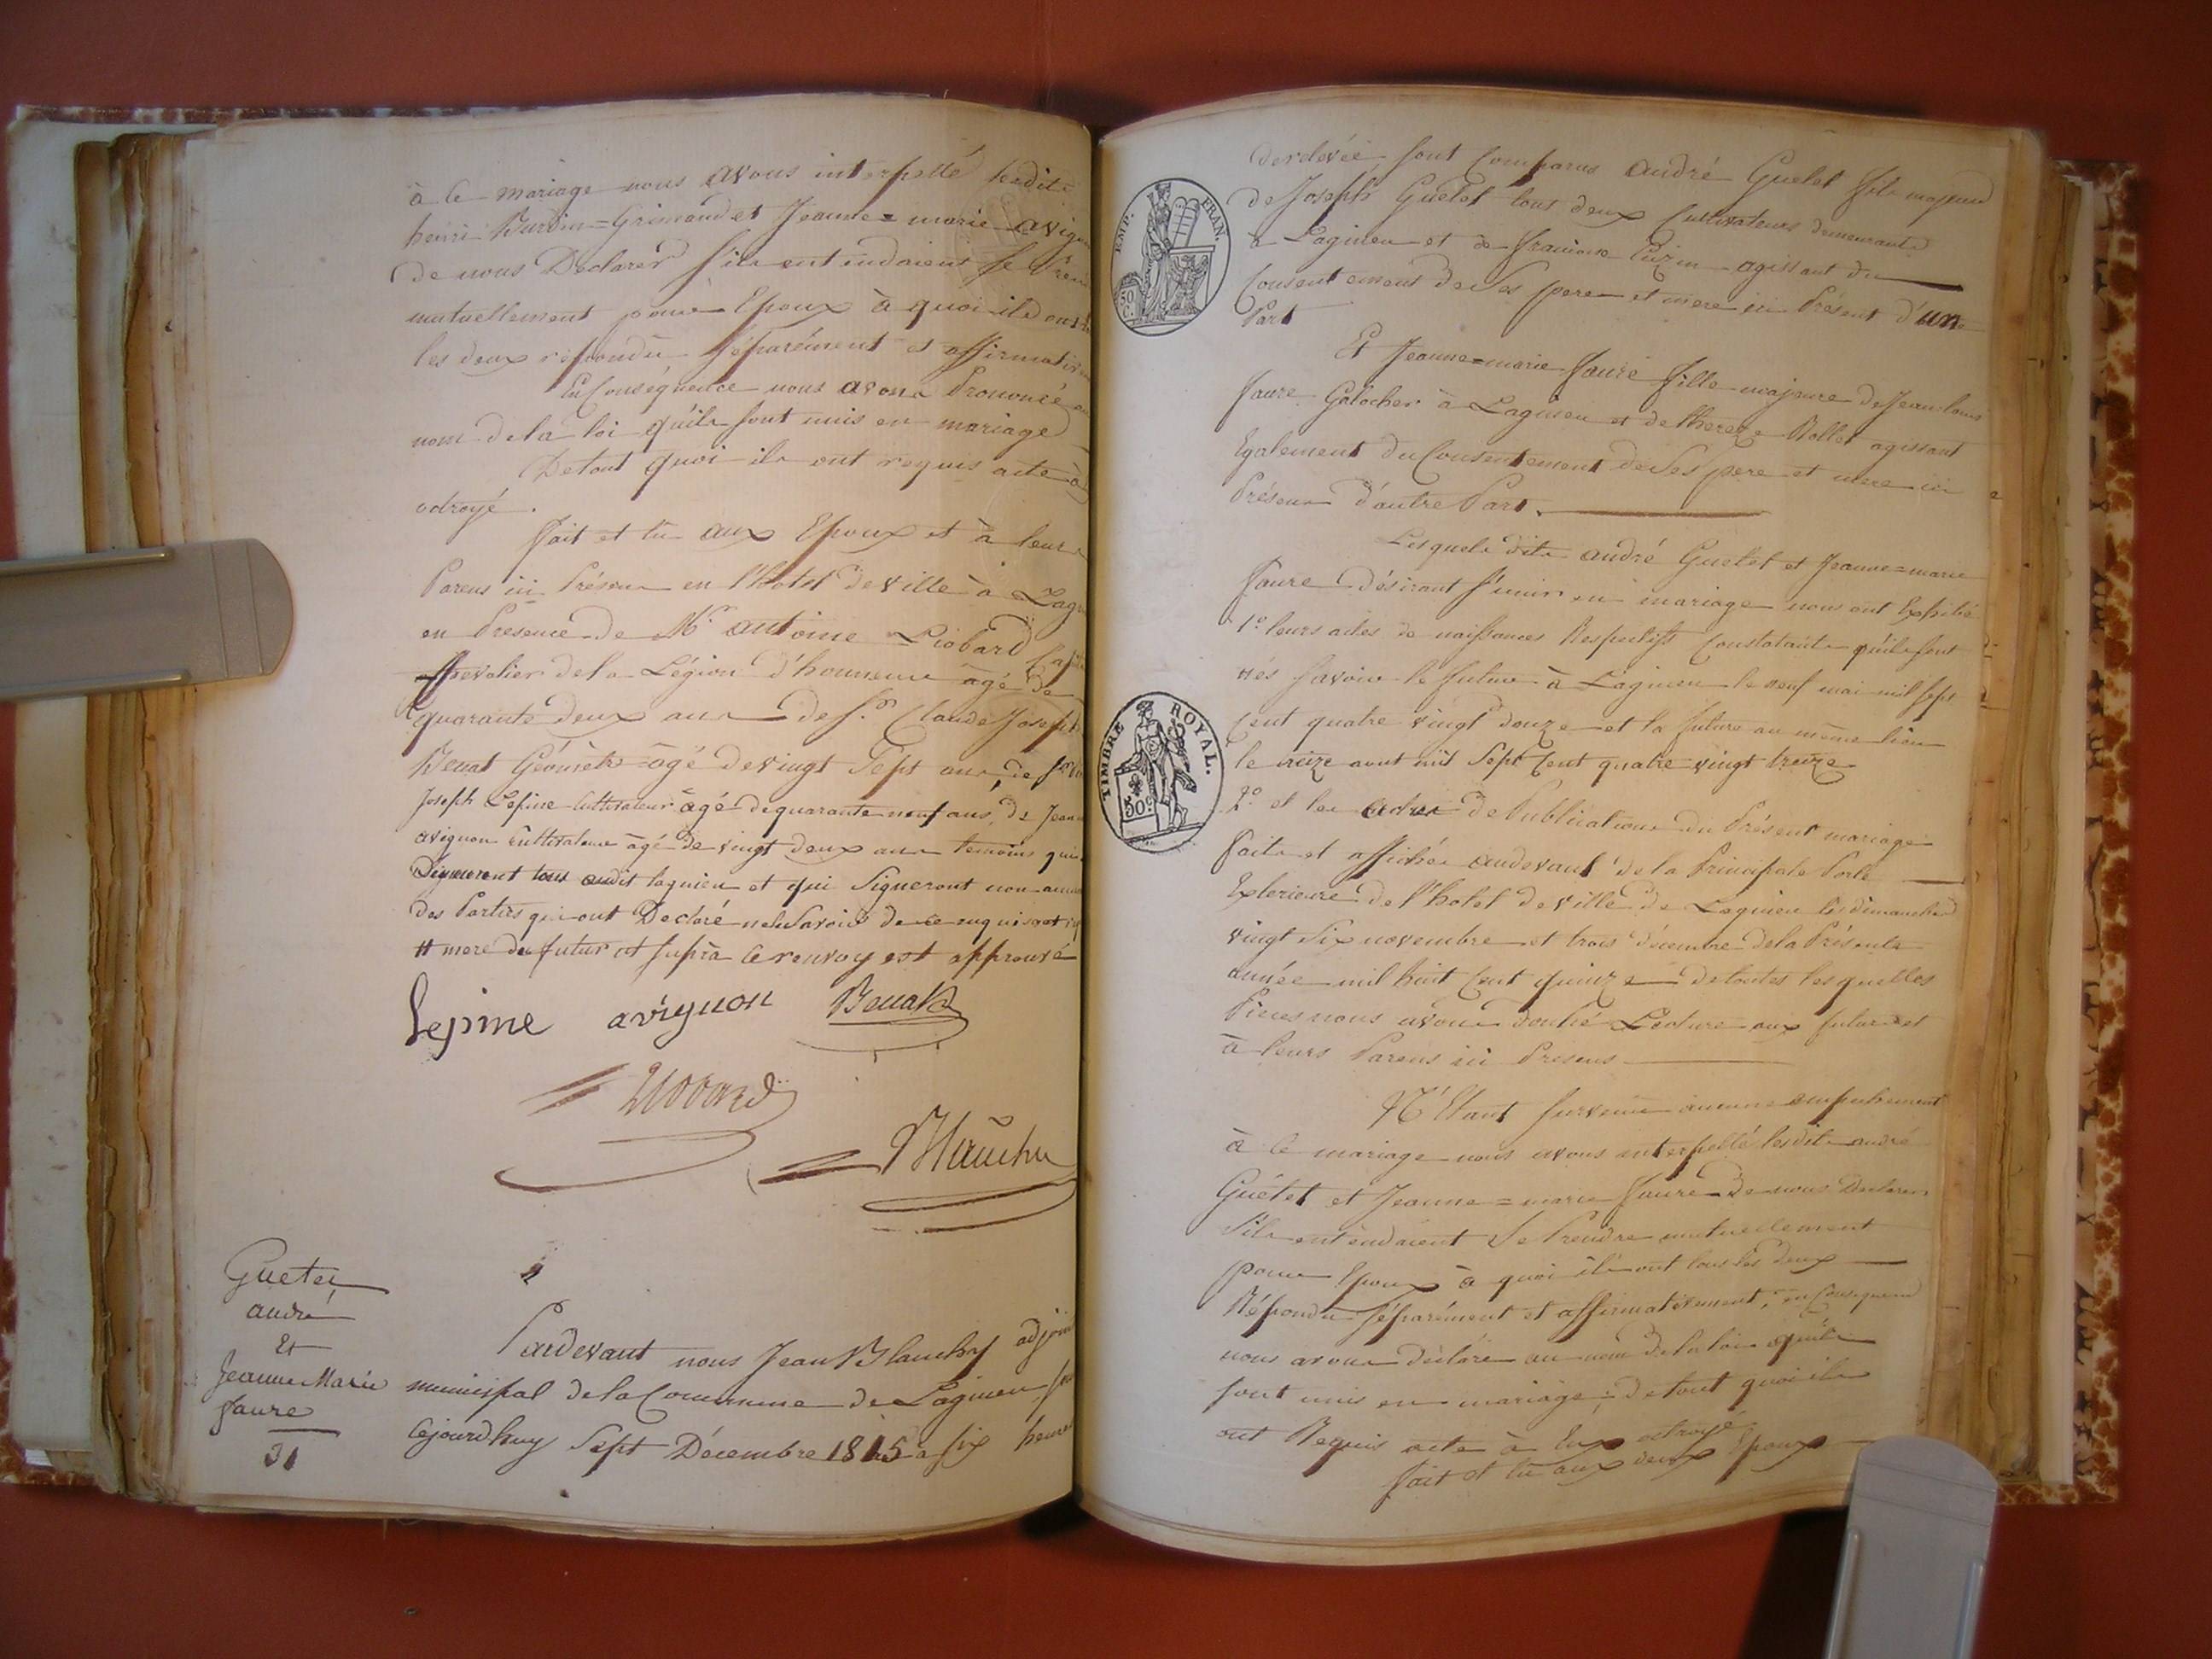 à ce mariage nous avons interpellé lesdits
henri Burdin=Grimaud et Jeanne=marie avign
de nous Déclarer s'ils entendaient se Pren
mutuellement pour Epoux à quoi ils ont t
les deux répondu séparément et affirmativ
En Conséquence nous avons Prononcé au
nom de la loi qu'ils sont unis en mariage
De tout quoi ils ont requis acte à
octroyé.
fait et lu aux Epoux et à leurs
Parens ici Présens en l'hotel de ville à Lagn
en Presence de Mr. antoine Liobard Cap
Chevalier de la Légion d'honneur âgé de
quarante deux ans de Sr. Claude Joseph
Benat Géomètre âgé de vingt Sept ans, de Sr
Joseph Lepine Cultivateur âgé de quarante neuf ans, de Jean
avignon Cultivateur âgé de vingt deux ans temoins qui
Demeurent tous audit lagnieu et qui Signeront non aucun
des Parties qui ont Déclaré ne le Savoir de ce enquis et
# mere du futur et supra le renvoy est approuvé
Lepine avignon Benat
Liobard
Blanchy
Guetet
andré
Et
Jeanne Marie
faure
31
Pardevant nous Jean Blanchy adjoint
municipal de la Commune de Lagnieu
Cejourdhuy Sept Décembre 1815 a six heures
EMP. FRAN.
50 C.
TIMBRE ROYAL.
50c
de relevée, sont Comparus andré Guetet fils majeur
de Joseph Guetet tous deux Cultivateurs demeurants
à Lagnieu et de françoise Cuzin agissant du
Consentement de Ses pere et mere ici Présent d'une
Part
Et Jeanne=marie faure fille majeure de Jean louis
faure Galocher à Lagnieu et de thereze Rollet agissant
Egalement du Consentement de Ses pere et mere ici
Présens d'autre Part.
Lesquels dits andré Guetet et Jeanne=marie
faure désirant s'unir en mariage nous ont Exhibé
1º leurs actes de naissances Respectifs Constatants qu'ils sont
nés savoir le futur à Lagnieu le neuf mai mil sept
Cent quatre vingt douze et la future au même lieu
le treize aout mil Sept Cent quatre vingt treize
2º et les actes de Publications du Présent mariage
faits et affichés audevant de la Principale Porte
Exterieure de l'hotel de ville de Lagnieu les dimanches
vingt Six novembre et trois décembre de la Présente
année mil huit Cent quinze de toutes lesquelles
Pieces nous avons donné Lecture aux futurs et
à leurs Parens ici Présens
N'Etant survenu aucun empechement
à ce mariage nous avons interpellé lesdits andré
Guétet et Jeanne=marie faure de nous Declarer
s'ils entendaient Se Prendre mutuellement
pour Epoux à quoi ils ont tous les deux
Répondu séparément et affirmativement, en Consequence
nous avons déclaré au nom de la loi qu'ils
sont unis en mariage; de tout quoi ils
ont Requis acte à Eux octroyé
fait et lu aux deux Epoux